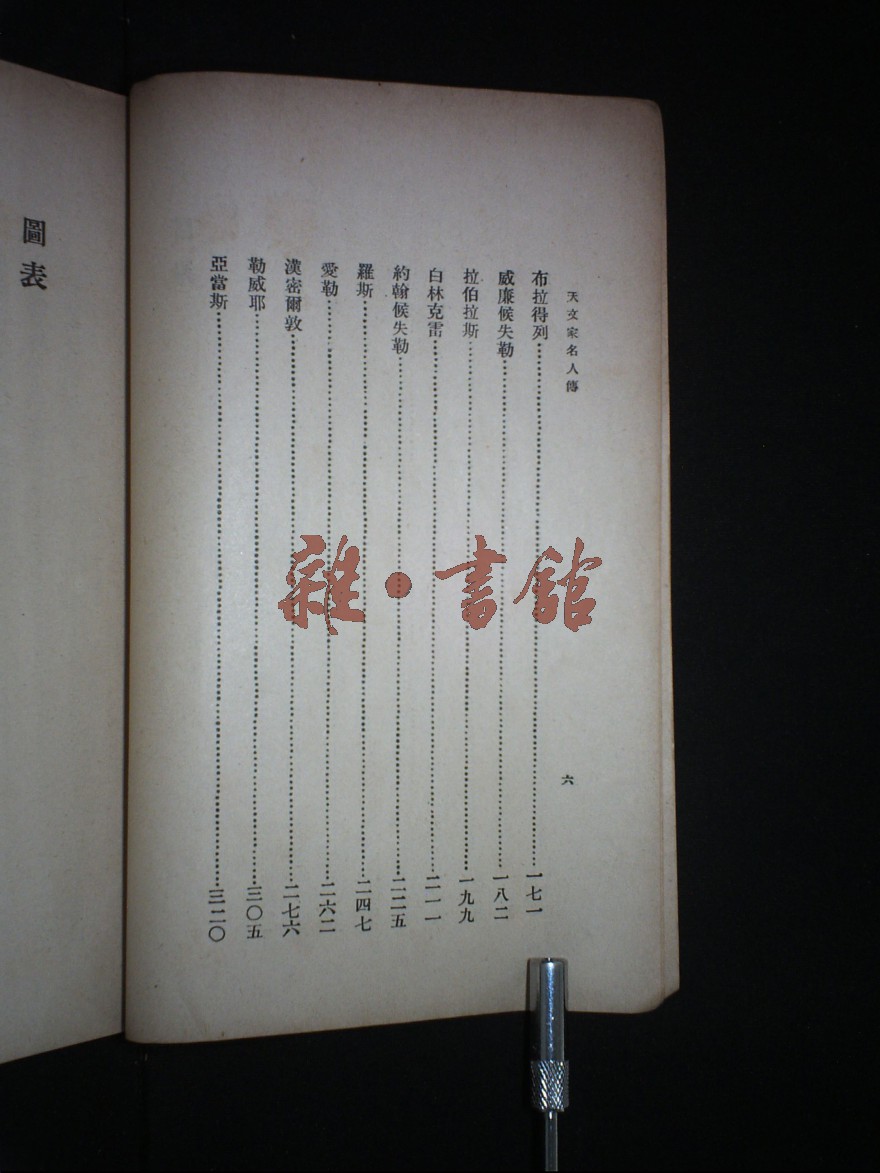 天文家名人傳
六
布拉得列……一七一
威廉候失勒……一八二
拉伯拉斯……一九九
白林克雷……二一一
約翰候失勒……二二五
羅斯……二四七
愛勒……二六二
漢密爾敦……二七六
勒威耶……三〇五
亞當斯……三二〇
圖表
雜·書館